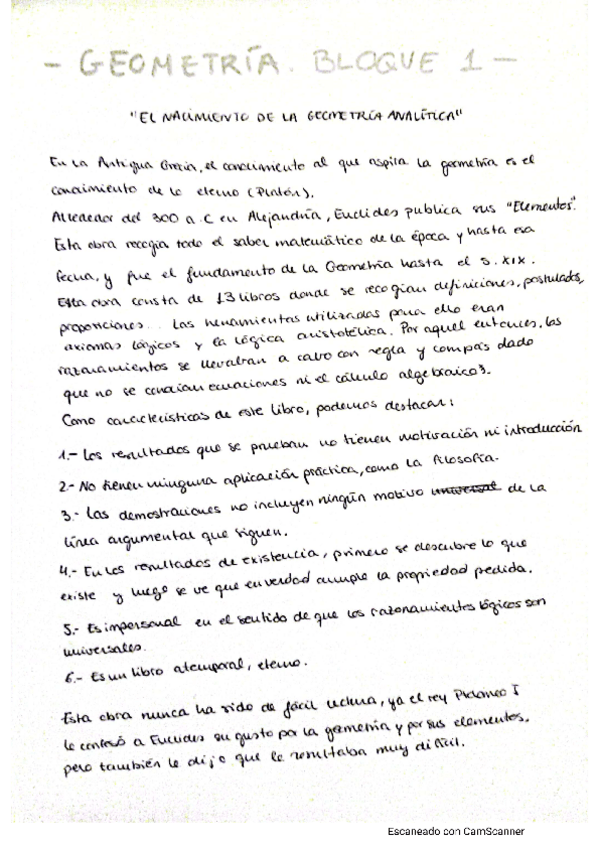 - GEOMETRÍA. BLOQUE 1 -
"EL NACIMIENTO DE LA GEOMETRÍA ANALÍTICA"
En la Antigua Grecia, el conocimiento al que aspira la geometría es el
conocimiento de lo eterno (Platón).
Alrededor del 300 a.C en Alejandría, Euclides publica sus "Elementos".
Esta obra recogía todo el saber matemático de la época y hasta esa
fecha, y fue el fundamento de la Geometría hasta el s. XIX.
Esta obra consta de 13 libros donde se recogían definiciones, postulados,
proposiciones... Las herramientas utilizadas para ello eran
axiomas lógicos y la lógica aristotélica. Por aquel entonces, los
razonamientos se llevaban a cabo con regla y compás dado
que no se conocían ecuaciones ni el cálculo algebraico.
Como características de este libro, podemos destacar:
1.- Los resultados que se prueban no tienen motivación ni introducción
2- No tienen ninguna aplicación práctica, como la filosofía.
3.- Las demostraciones no incluyen ningún motivo universal de la
línea argumental que siguen.
4.- En los resultados de existencia, primero se descubre lo que
existe y luego se ve que en verdad cumple la propiedad pedida.
5.- Es impersonal en el sentido de que los razonamientos lógicos son
universales.
6.- Es un libro atemporal, eterno.
Esta obra nunca ha sido de fácil lectura, ya el rey Ptolomeo I
le confesó a Euclides su gusto por la geometría y por sus elementos,
pero también le dijo que le resultaba muy difícil.
Escaneado con CamScanner